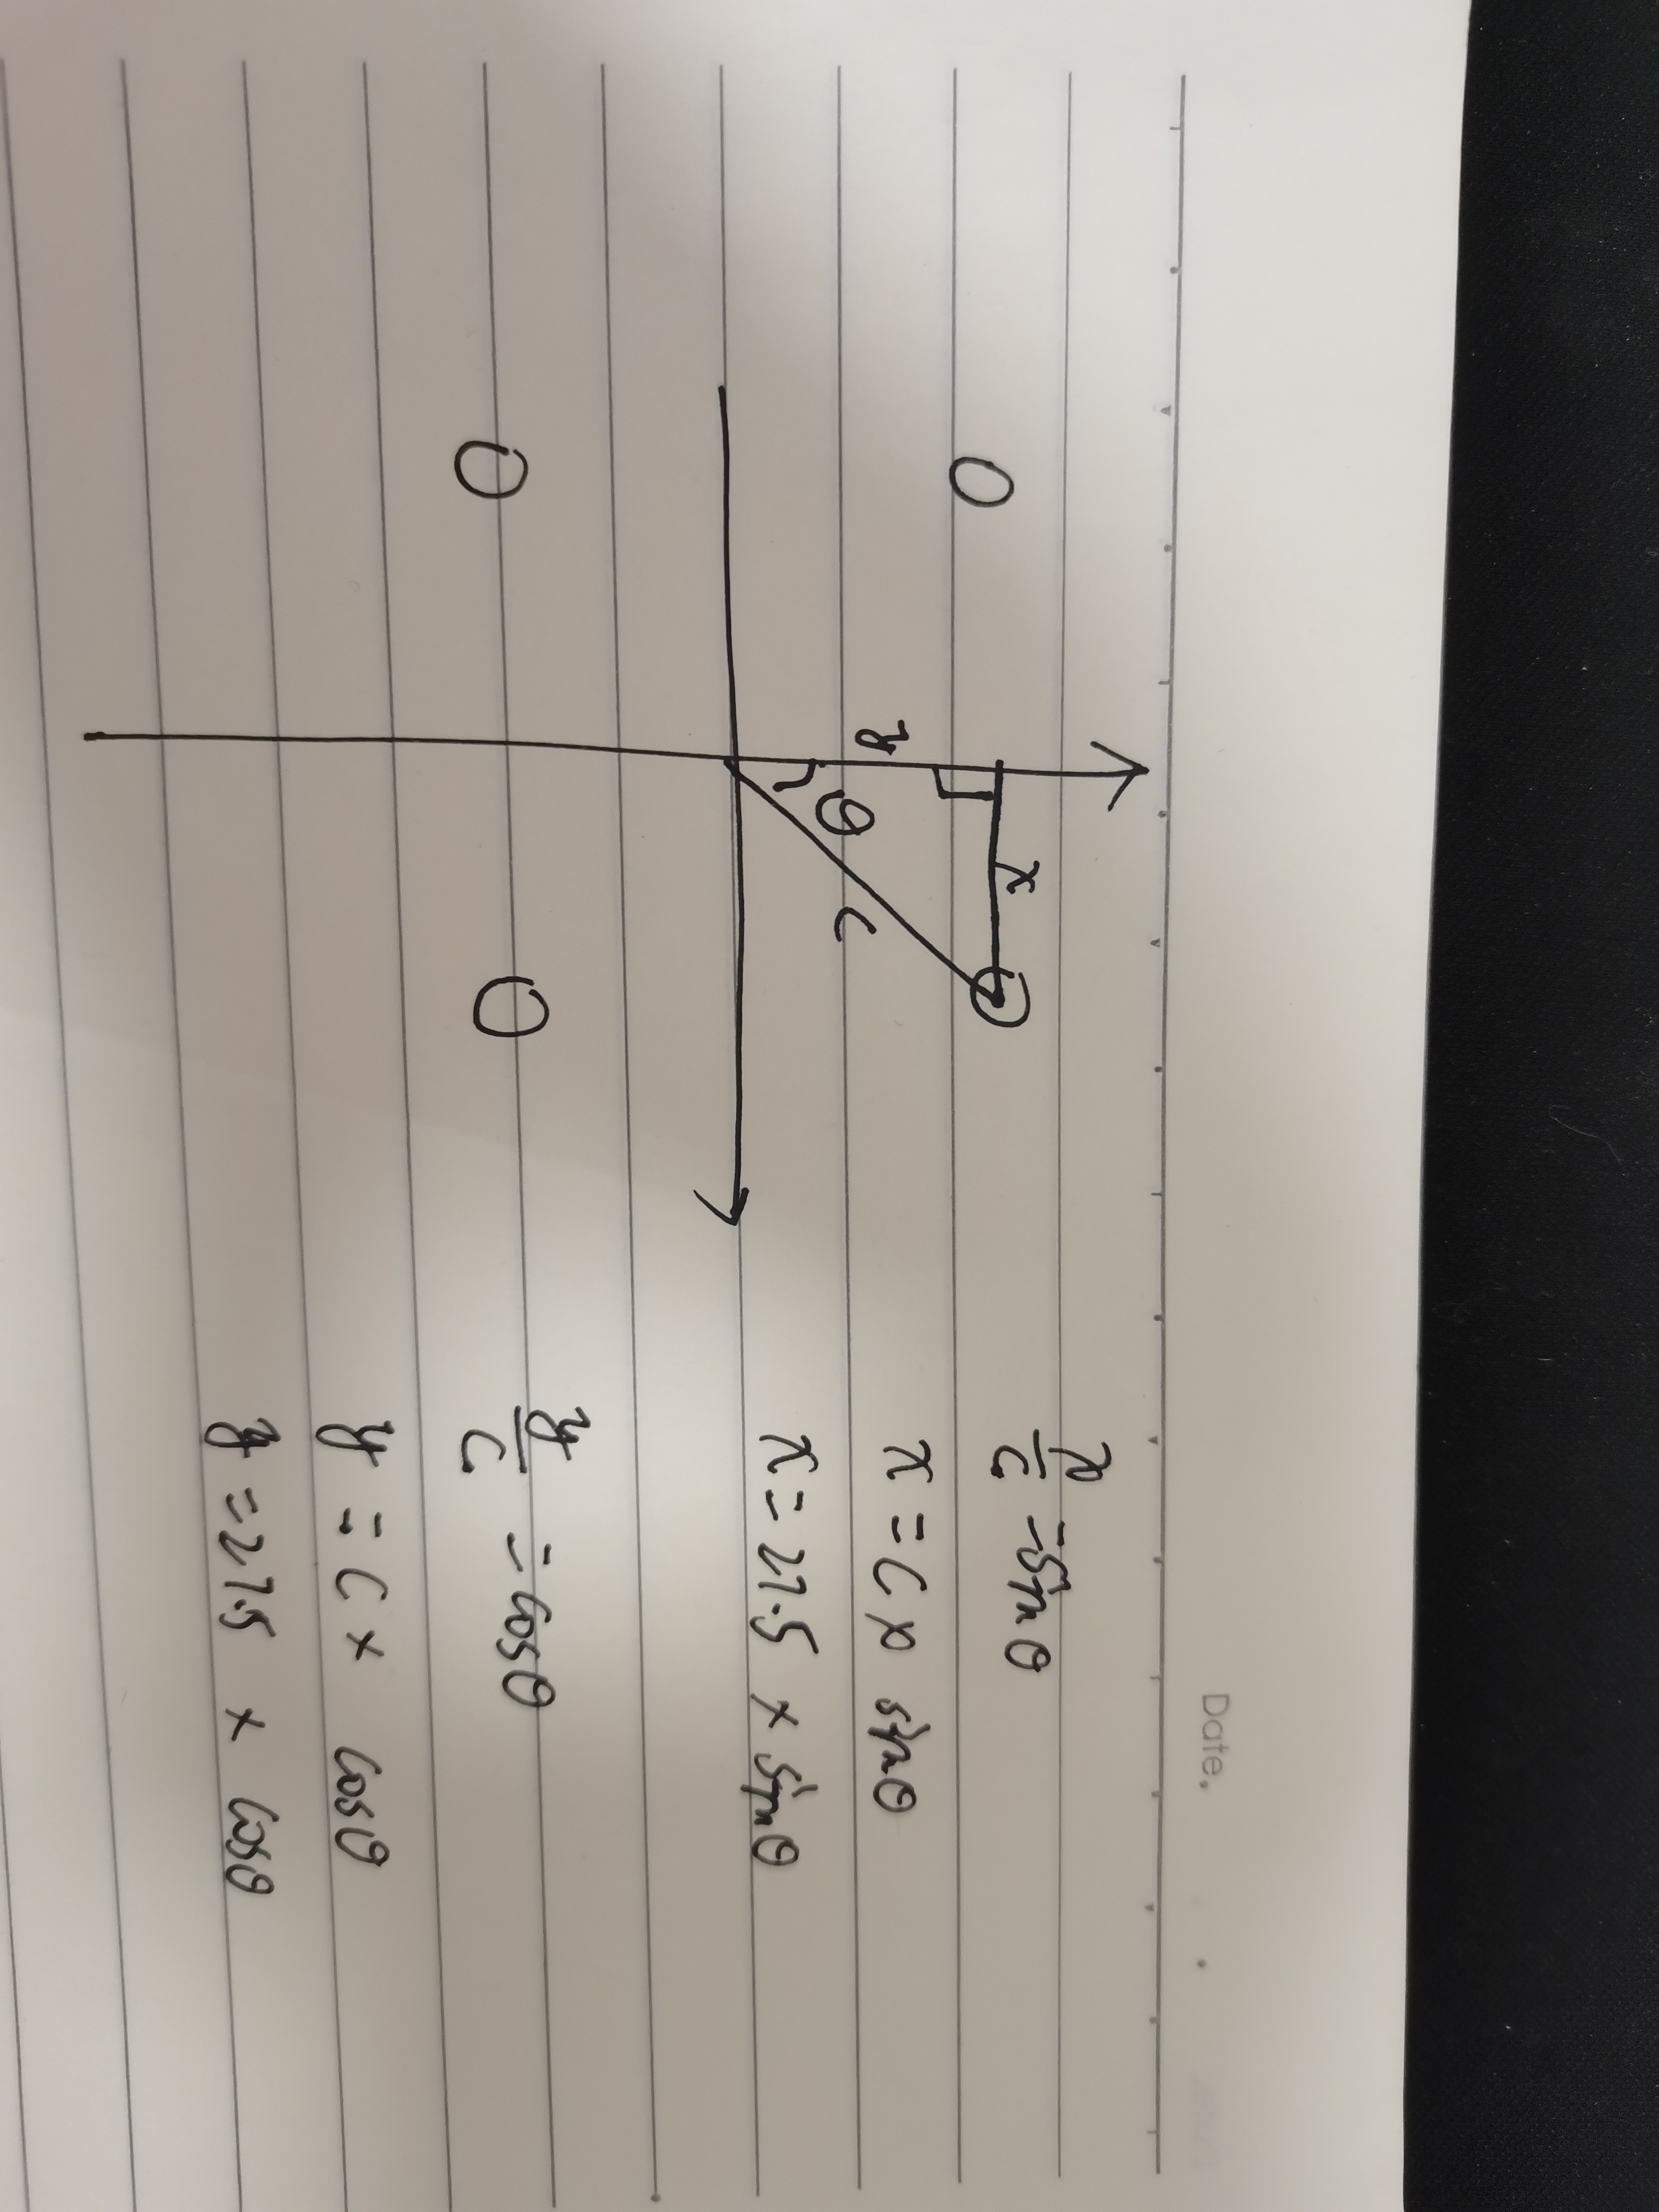 Date.
x
y
θ
c
x/c = sinθ
x = c × sinθ
x = 27.5 × sinθ
y/c = cosθ
y = c × cosθ
y = 27.5 × cosθ